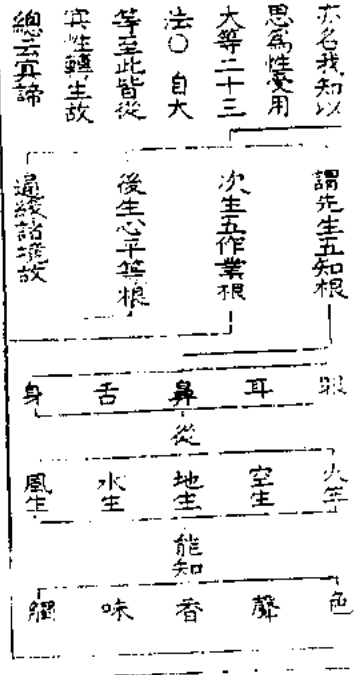 亦名我知以
思爲性受用
大等二十三
法○自大
等至此皆從
冥性轉生故
總云冥諦
謂先生五知根
次生五作業根
後生心平等根
遍緣諸境故
眼 耳 鼻 舌 身
從
火生 空生 地生 水生 風生
能知
色 聲 香 味 觸